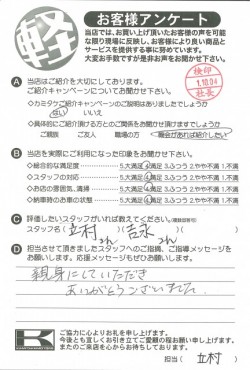 軽
お客様アンケート
当店では、お買い上げ頂いたお客様の声を可能
な限り現場に反映し、お客様により良い商品と
サービスを提供する事に努めています。
大変お手数ですが是非お声をお聞かせ下さい。
検印
1.10.04
社長
A 当店はご紹介を大切にしております。
ご紹介キャンペーンについてお聞かせ下さい。
◇カミタケご紹介キャンペーンのご説明はありましたでしょうか
はい いいえ
◇具体的にご紹介頂ける方とのご関係をお聞かせ頂けますでしょうか
ご親族 ご友人 職場の方 機会があれば紹介したい
B 当店を実際にご利用になった印象をお聞かせ下さい。
◇総合的な満足度 5.大満足 4.満足 3.ふつう 2.やや不満 1.不満
◇スタッフの対応 5.大満足 4.満足 3.ふつう 2.やや不満 1.不満
◇お店の雰囲気、清掃 5.大満足 4.満足 3.ふつう 2.やや不満 1.不満
◇納車時のお車の状態 5.大満足 4.満足 3.ふつう 2.やや不満 1.不満
C 評価したいスタッフがいれば教えてください。(複数回答可)
スタッフ名( 立村さん )( 吉永さん )
D 担当させて頂きましたスタッフへのご指摘、ご指導メッセージを
お願いします。応援メッセージもぜひお願いします。
親身にしていただき
ありがとうございました。
K
ご協力に心よりお礼を申し上げます。
今後とも宜しくお引き立てご愛顧の程お願い申し上げます。
またのご来店を心からお待ちしております。
担当( 立村 )